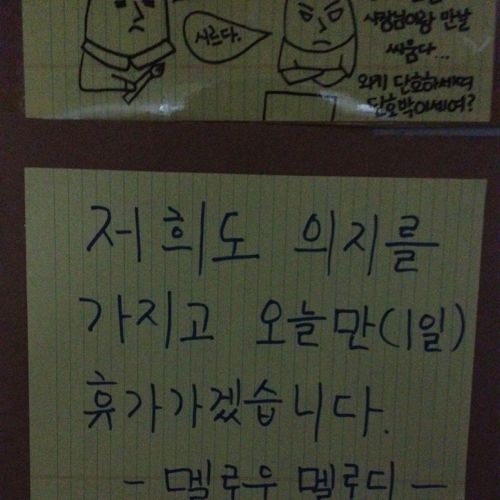 시르다.
사장님이랑 만날
싸움다...
와키 단호하세여
단호박이세여?
저희도 의지를
가지고 오늘만(1일)
휴가가겠습니다.
- 멜로우 멜로디 -